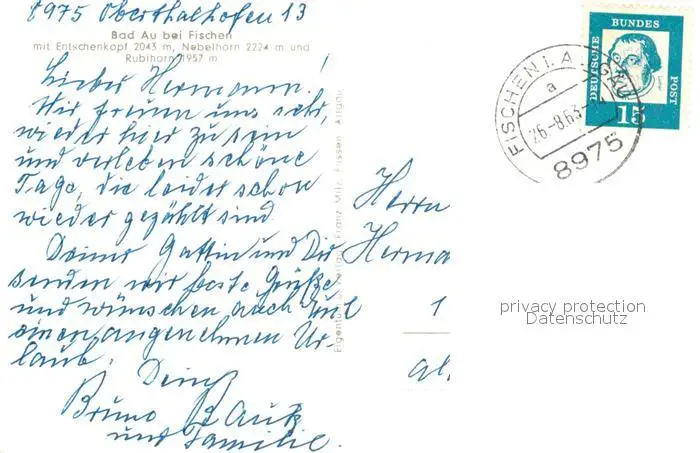 8975 Oberthalhofen 13
Bad Au bei Fischen
mit Entschenkopf 2043 m, Nebelhorn 2224 m und
Rubihorn 1957 m
Lieber Hermann!
Wir freuen uns sehr,
wieder hier zu sein
und verleben schöne
Tage, die leider schon
wieder gezählt sind.
Deiner Gattin und Dir
senden wir beste Grüße
und wünschen auch Euch
einen angenehmen Ur-
laub.
Dein
Bruno
und Familie.
Eigentum u. Verlag Franz Milz, Füssen Allgäu
Herrn
Herma
1
DEUTSCHE BUNDES POST
15
FISCHEN I. ALLGÄU
a
26.-8.63
8975
privacy protection
Datenschutz